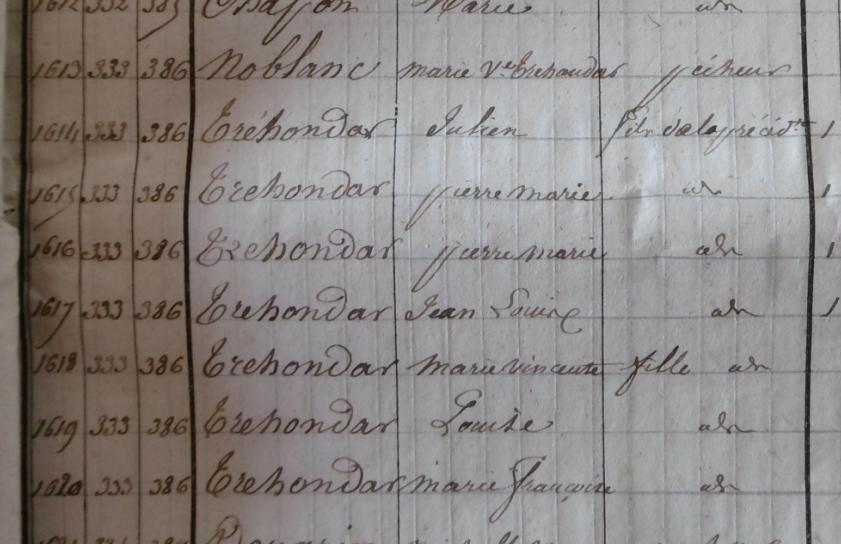 1612 332 385 Marie
1613 333 386 Noblanc marie Ve Trehondar pécheur
1614 333 386 Tréhondar Julien fils de la précédte 1
1615 333 386 Trehondar pierre marie idn 1
1616 333 386 Trehondar pierre marie idn 1
1617 333 386 Trehondar Jean Louis idn 1
1618 333 386 Trehondar marie vincente fille idn
1619 333 386 Trehondar Louise idn
1620 333 386 Trehondar marie françoise idn